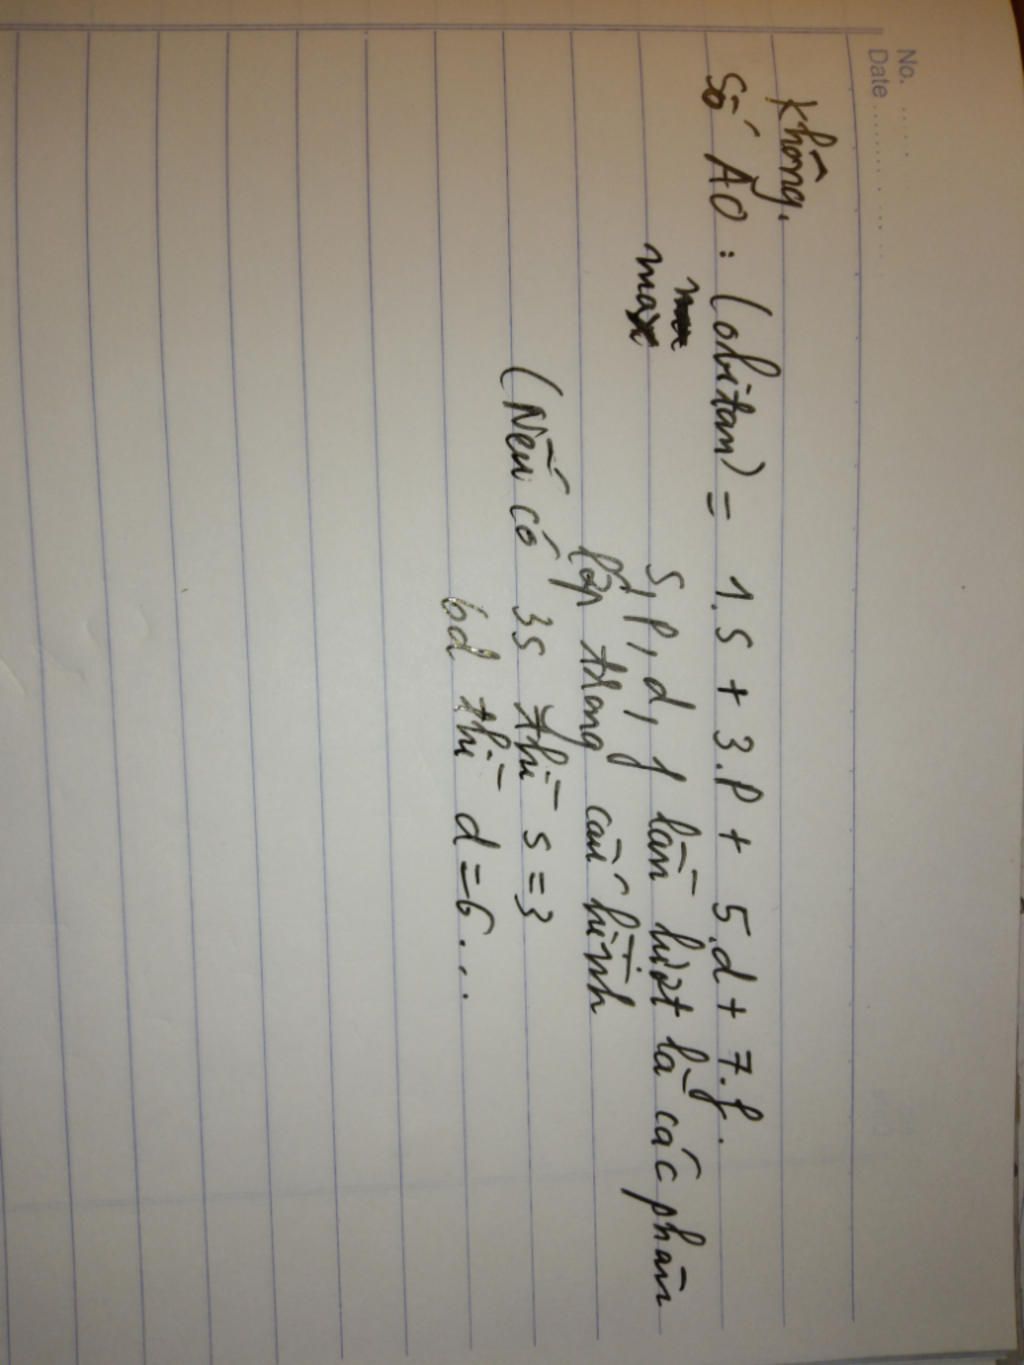 No. ......
Date ..............
Không.
Số AO : (obitan) = 1.s + 3.p + 5.d + 7.f.
max
s, p, d, f lần lượt là các phân
lớp trong cấu hình
(Nếu có 3s thì s = 3
6d thì d = 6 ...